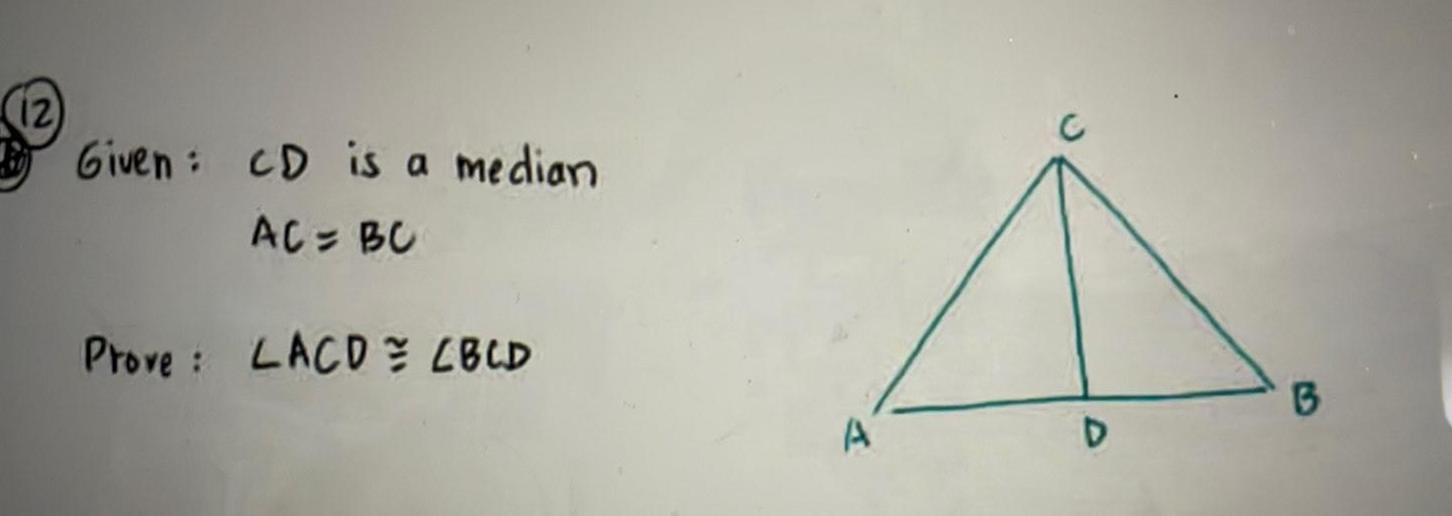 12
Given: CD is a median
AC = BC
Prove: ∠ACD ≅ ∠BCD
C
A
D
B